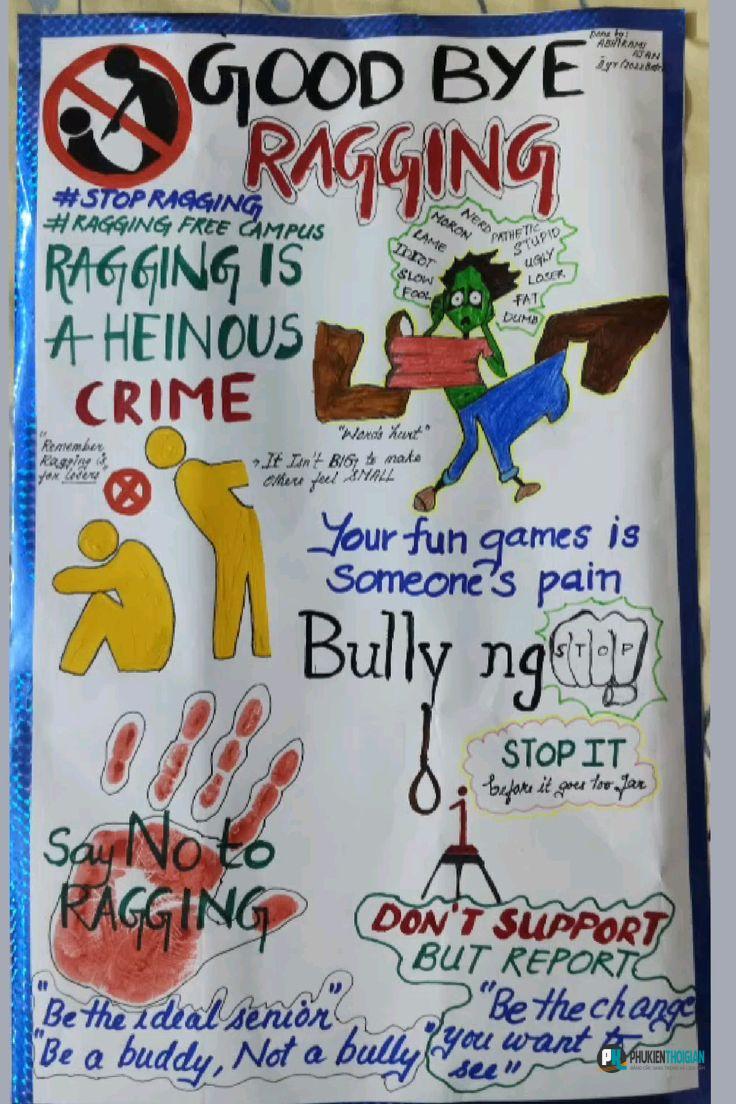 GOOD BYE
RAGGING
Done by:
ABHIRAMI
AJAN
# STOP RAGGING
# RAGGING FREE CAMPUS
RAGGING IS
A HEINOUS
CRIME
NERD
MORON
PATHETIC
LAME
STUPID
IDIOT
UGLY
SLOW
LOSER
FOOL
FAT
DUMB
"Words hurt"
"Remember
Ragging is
for Losers"
→ It Isn't BIG, to make
others feel SMALL
Your fun games is
someone's pain
Bully ng
STOP
STOP IT
before it goes too far
i
Say No to
RAGGING
DON'T SUPPORT
BUT REPORT
"Be the ideal senior"
"Be a buddy, Not a bully"
"Be the change
you want to
see"
PHUKIENTHOIGIAN